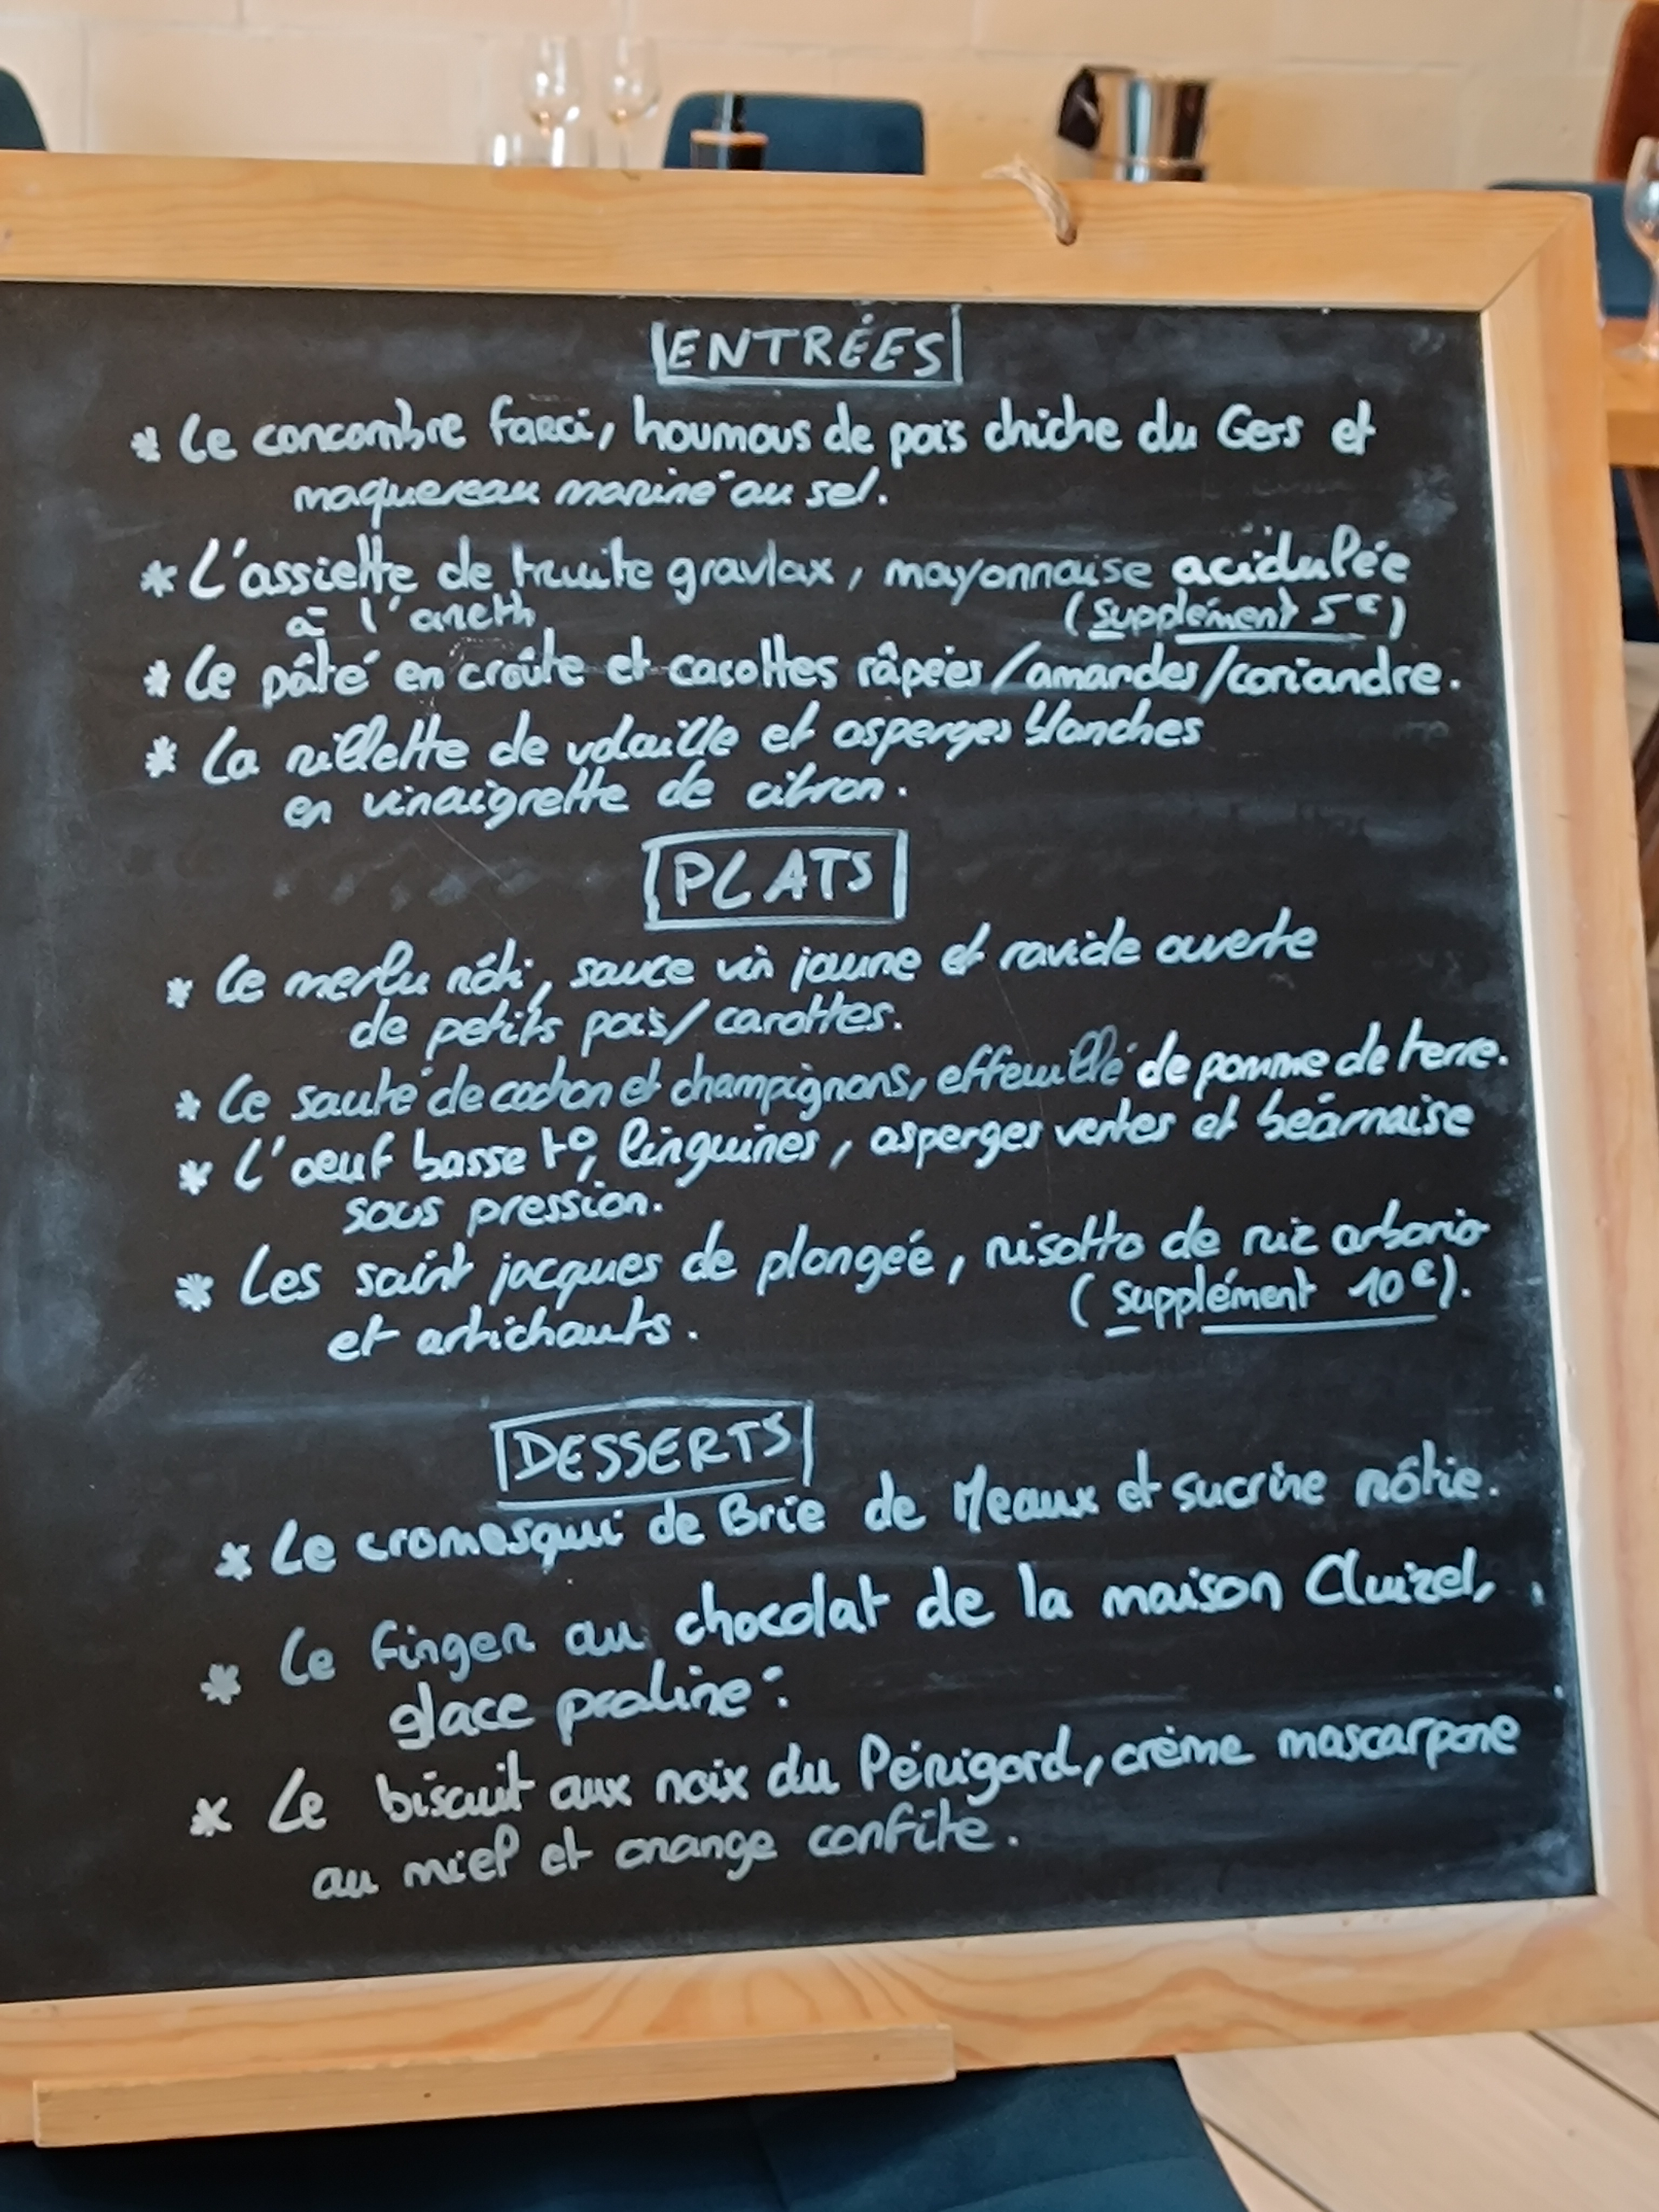 ENTRÉES
* Le concombre farci, houmous de pois chiche du Gers et
maquereau mariné au sel.
* L'assiette de truite gravlax, mayonnaise acidulée
à l'aneth (supplément 5€)
* Le pâté en croûte et carottes râpées/amandes/coriandre.
* La rillette de volaille et asperges blanches
en vinaigrette de citron.
PLATS
* Le merlu rôti, sauce vin jaune et raviole ouverte
de petits pois/carottes.
* Le sauté de cochon et champignons, effeuillé de pomme de terre.
* L'oeuf basse t°, linguines, asperges vertes et béarnaise
sous pression.
* Les saint jacques de plongée, risotto de riz arborio
et artichauts. (supplément 10€).
DESSERTS
* Le cromesqui de Brie de Meaux et sucrine rôtie.
* Le finger au chocolat de la maison Cluizel,
glace praliné.
* Le biscuit aux noix du Périgord, crème mascarpone
au miel et orange confite.